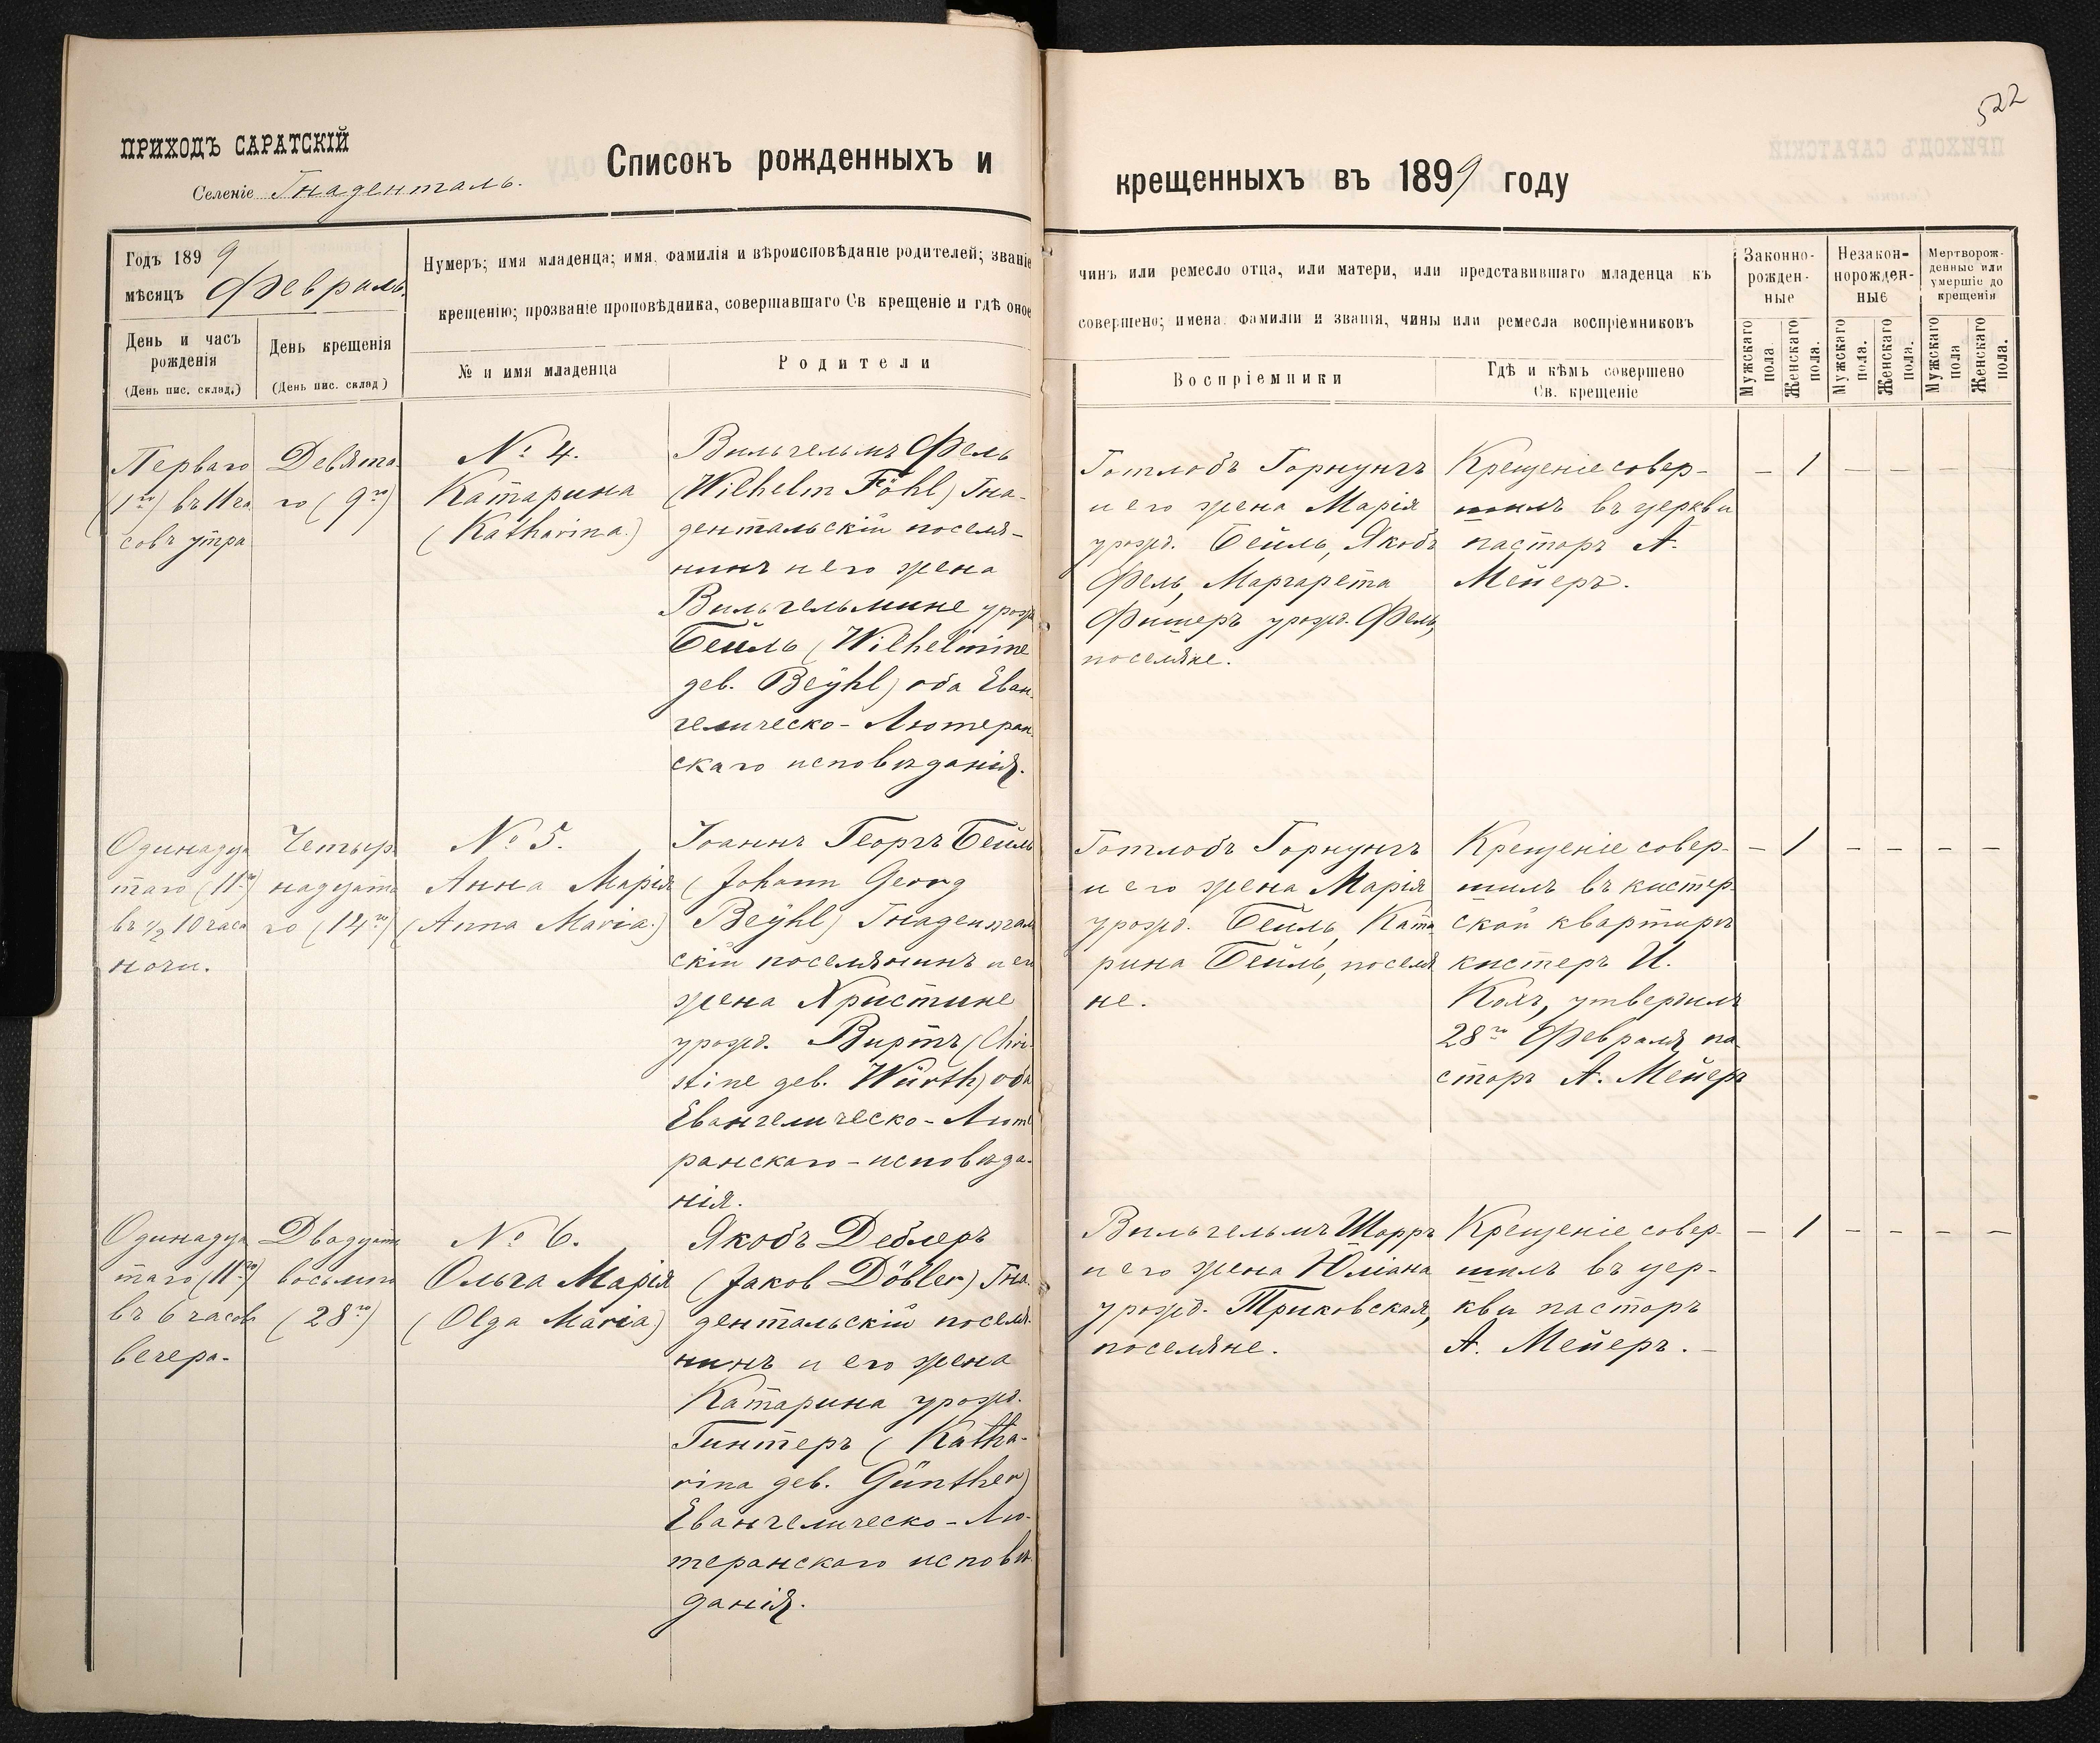 522
ПРИХОДЪ САРАТСКІЙ
Селеніе Гнаденталь.
Списокъ рожденныхъ и
крещенныхъ въ 1899 году
Годъ 1899
мѣсяцъ Февраль.
День и часъ
рожденія
(День пис. склад.)
День крещенія
(День пис. склад)
Нумеръ; имя младенца; имя, фамилія и вѣроисповѣданіе родителей; званіе
крещенію; прозваніе проповѣдника, совершавшаго Св крещеніе и гдѣ оное
№ и имя младенца
Родители
чинъ или ремесло отца, или матери, или представившаго младенца къ
совершено; имена, фамиліи и званія, чины или ремесла воспріемниковъ
Воспріемники
Гдѣ и кѣмъ совершено
Св. крещеніе
Законно-
рожден-
ные
Незакон-
норожден-
ные
Мертворож-
денные или
умершіе до
крещенія
Мужскаго
пола
Женскаго
пола.
Мужскаго
пола.
Женскаго
пола.
Мужскаго
пола
Женскаго
пола.
Перваго
(1го) въ 11 ча
совъ утра
Девята
го (9го)
№ 4.
Катарина
(Katharina.)
Вильгельмъ Фель
(Wilhelm Föhl) Гна-
дентальскій поселя-
нинъ и его жена
Вильгельмине урожд
Бейль (Wilhelmine
geb. Beÿhl) оба Еван-
гелическо-Лютеран
скаго исповѣданія.
Готлобъ Горнунгъ
и его жена Марія
урожд. Бейль, Якобъ
Фель, Маргарета
Фишеръ урожд. Фель,
поселяне.
Крещеніе совер-
шилъ въ церкви
пасторъ А.
Мейеръ.
— 1 — — — —
Одинадца
таго (11го)
въ 1/2 10 часа
ночи.
Четыр
надцата
го (14го)
№ 5.
Анна Марія
(Anna Maria.)
Іоаннъ Георгъ Бейль
(Johann Georg
Beÿhl) Гнаденталь
скій поселянинъ и его
жена Христине
урожд. Виртъ (Chri-
stine geb. Würth) оба
Евангелическо-Люте
ранскаго-исповѣда-
нія.
Готлобъ Горнунгъ
и его жена Марія
урожд. Бейль, Ката
рина Бейль, поселя
не.
Крещеніе совер-
шилъ въ кистер-
ской квартирѣ
кистеръ И.
Колъ, утвердилъ
28го Февраля па-
сторъ А. Мейеръ
— 1 — — — —
Одинадца
таго (11го)
въ 6 часовъ
вечера.
Двадцать
восьмого
(28го)
№ 6.
Ольга Марія
(Olga Maria)
Якобъ Деблеръ
(Jakob Döbler) Гна-
дентальскій поселя-
нинъ и его жена
Катарина урожд.
Гинтеръ (Katha-
rina geb. Günther)
Евангелическо-Лю-
теранскаго исповѣ-
данія.
Вильгельмъ Шорръ
и его жена Юліана
урожд. Триковская,
поселяне.
Крещеніе совер-
шилъ въ цер-
кви пасторъ
А. Мейеръ. —
— 1 — — — —